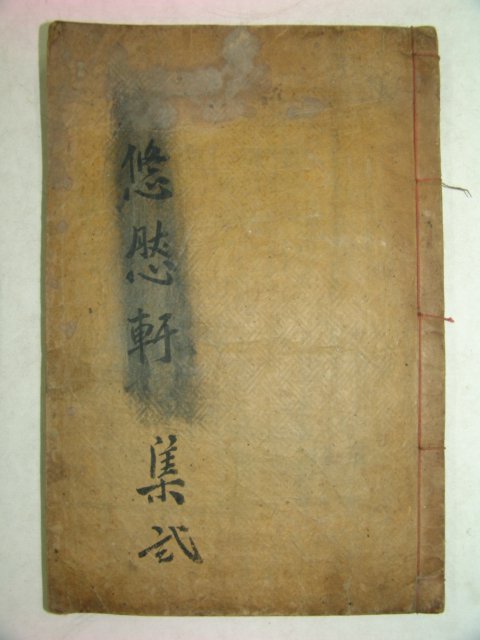 悠然軒集 弍